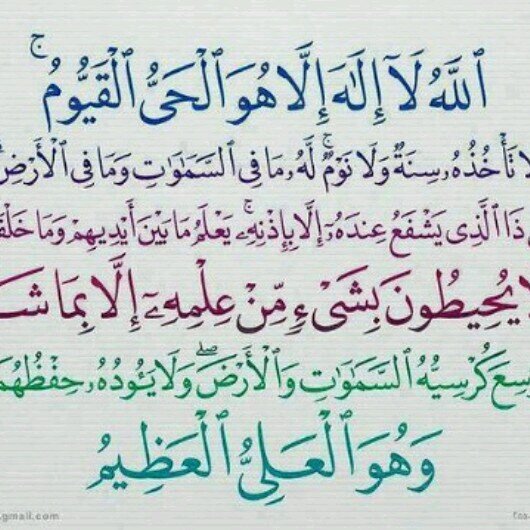 ٱللَّهُ لَآ إِلَٰهَ إِلَّا هُوَ ٱلْحَىُّ ٱلْقَيُّومُ ۚ
لَا تَأْخُذُهُۥ سِنَةٌ وَلَا نَوْمٌ ۚ لَّهُۥ مَا فِى ٱلسَّمَٰوَٰتِ وَمَا فِى ٱلْأَرْضِ
ذَا ٱلَّذِى يَشْفَعُ عِندَهُۥٓ إِلَّا بِإِذْنِهِۦ ۚ يَعْلَمُ مَا بَيْنَ أَيْدِيهِمْ وَمَا خَلْفَ
لَا يُحِيطُونَ بِشَىْءٍ مِّنْ عِلْمِهِۦٓ إِلَّا بِمَا شَا
سِعَ كُرْسِيُّهُ ٱلسَّمَٰوَٰتِ وَٱلْأَرْضَ ۖ وَلَا يَـُٔودُهُۥ حِفْظُهُمَ
وَهُوَ ٱلْعَلِىُّ ٱلْعَظِيمُ
gmail.com